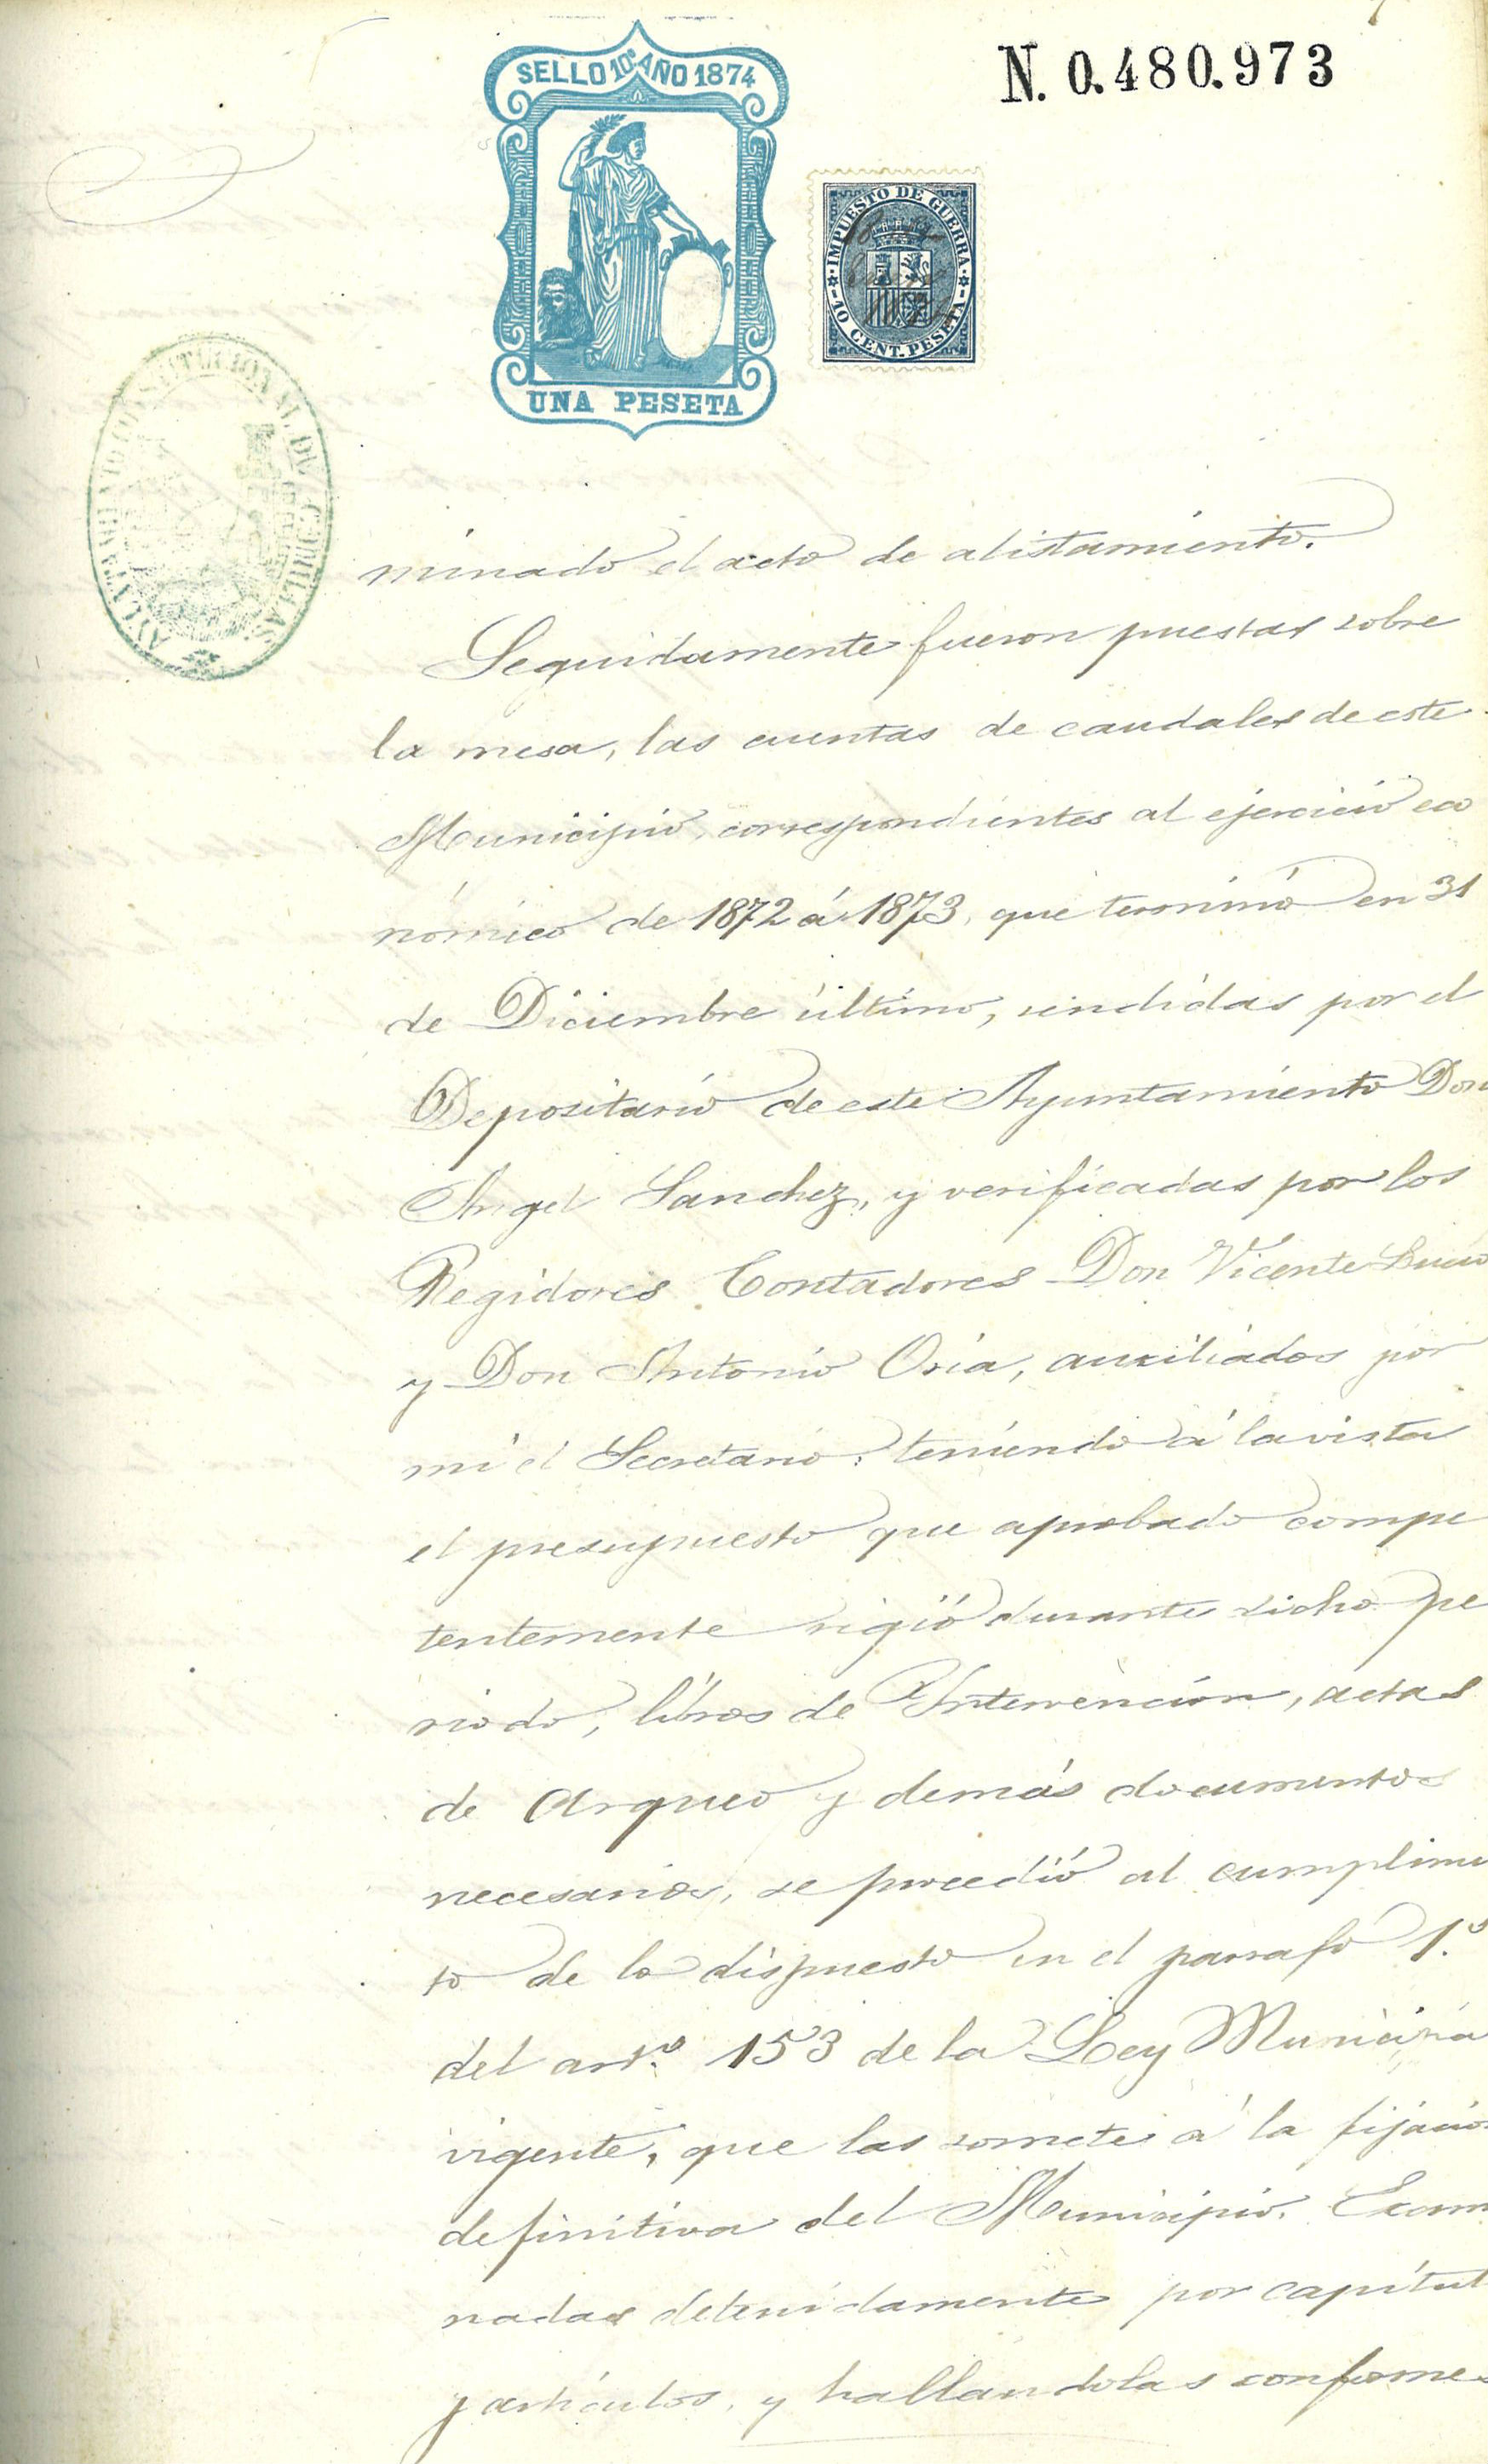 N. 0.480.973
SELLO 10º AÑO 1874
UNA PESETA
IMPUESTO DE GUERRA
10 CENT. PESETA
AYUNTAMIENTO CONSTITUCIONAL DE COMILLAS
minado el acto de alistamiento.
Seguidamente fueron puestas sobre
la mesa, las cuentas de caudales de este
Municipio, correspondientes al ejercicio eco
nómico de 1872 á 1873, que terminó en 31
de Diciembre último, rendidas por el
Depositario de este Ayuntamiento Don
Angel Sanchez, y verificadas por los
Regidores Contadores Don Vicente
y Don Antonio Oria, auxiliados por
mi el Secretario: teniendo á la vista
el presupuesto que aprobado compe
tentemente rigió durante dicho pe
riodo, libros de Intervención, actas
de Arqueo y demás documentos
necesarios, se procedió al cumplimi
to de lo dispuesto en el parrafo 1.º
del artº. 153 de la Ley Municipa
vigente, que las somete á la fijacio
definitiva del Municipio. Exam
nadas detenidamente por capítul
y artículos, y hallandolas conformes